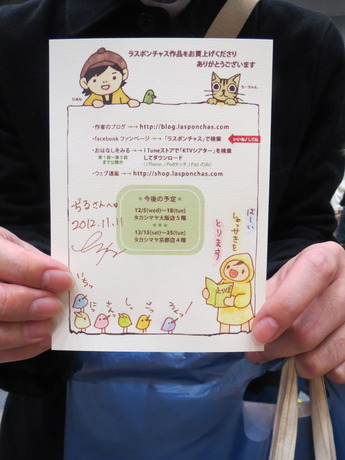 ラスポンチャス作品をお買上げくださり
ありがとうございます
・作者のブログ →→ http://blog.lasponchas.com
・facebook ファンページ →→「ラスポンチャス」で検索
いいね!してね
・おはなしをみる →→ i Tuneストアで「KTVシアター」を検索
第1話〜第3話
まで公開中
してダウンロード
・ウェブ通販 →→ http://shop.lasponchas.com
＊今後の予定＊
12/5(wed)〜18(tue)
タカシマヤ大阪店5階
12/15(sat)〜25(tue)
タカシマヤ京都店4階
ぢるさんへ
2012.11.11
はーい
しゅっせきを
とります
いちっ
にっ
さんっ
しっ
ごっ
ろくっ!